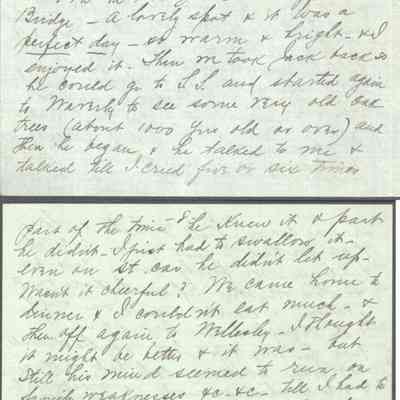 Bridge - A lovely spot & it was a
perfect day - so warm & bright - & I
enjoyed it - Then we took Jack back so
he could go to S.S. and started again
to Waverly to see some very old oak
trees (about 1000 yrs old or over) and
then he began & he talked to me &
talked till I cried five or six times
part of the time & he knew it & part
he didn't - I just had to swallow it -
even on st. car he didn't let up -
Wasn't it cheerful? We came home to
dinner & I couldn't eat much - &
then off again to Wellesley - I thought
it might be better & it was - but
still his mind seemed to run on
family weaknesses &c - &c - till I had to